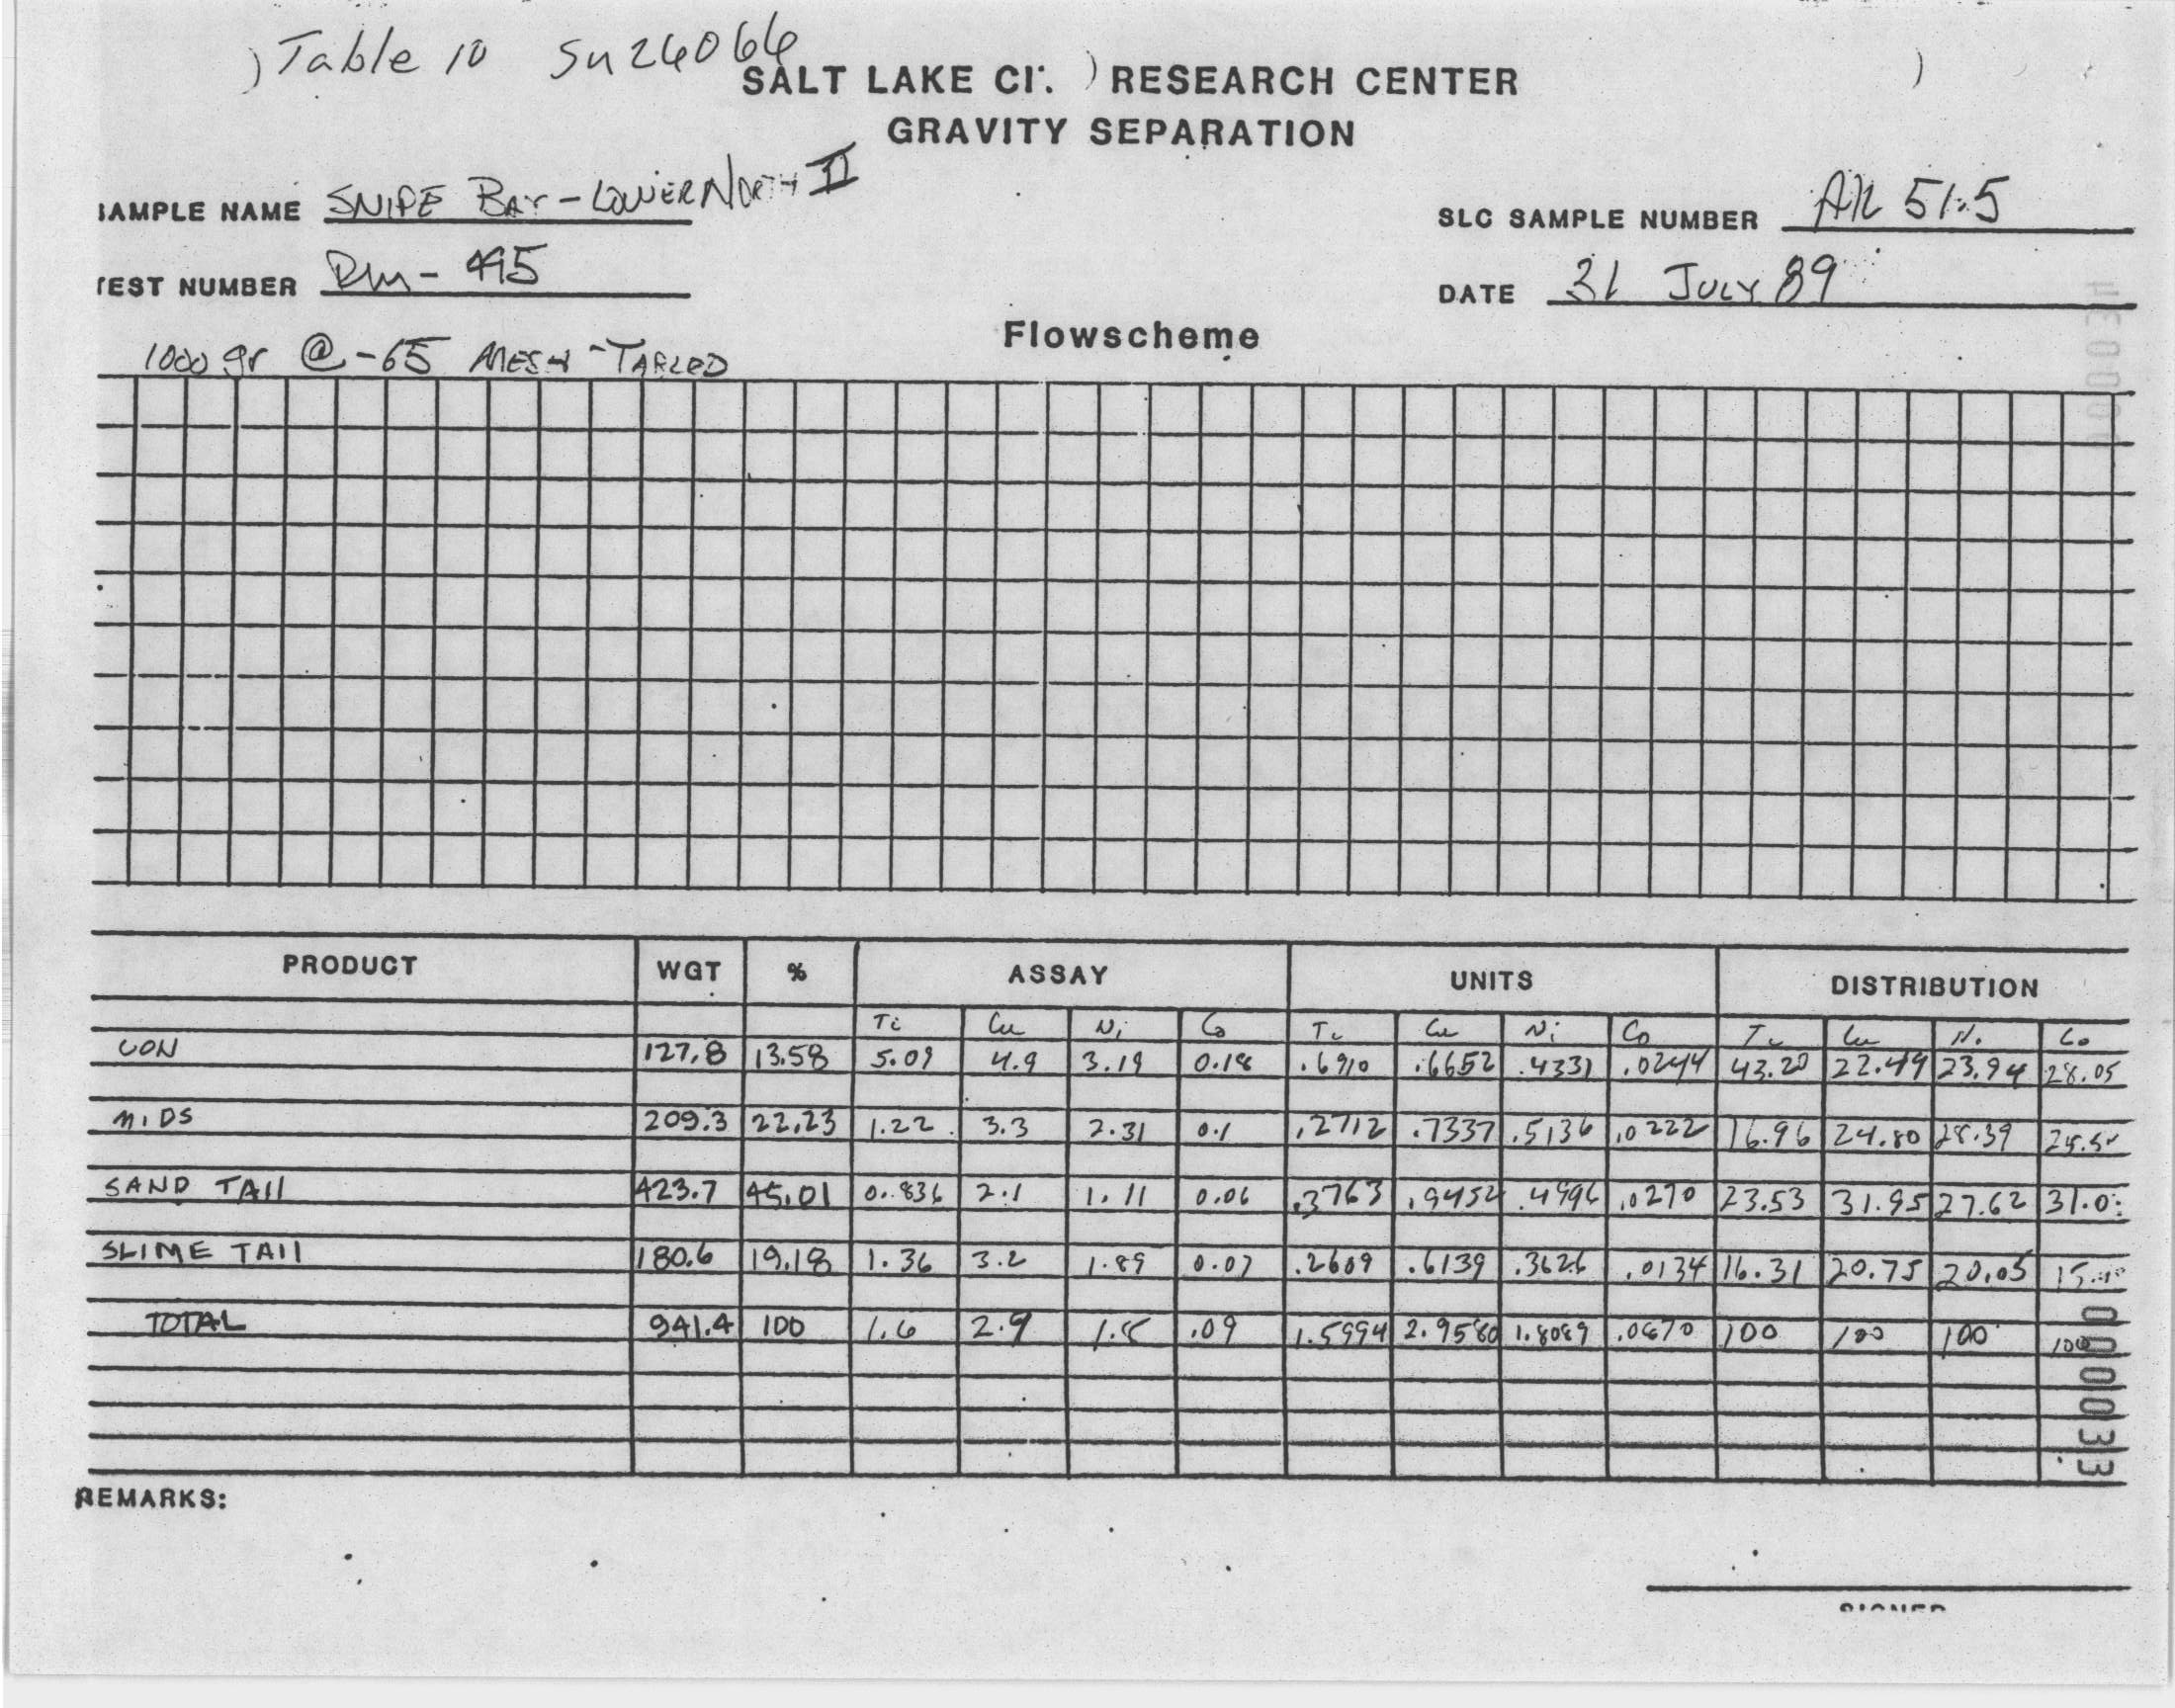 Table 10 Sn26066
SALT LAKE CI. RESEARCH CENTER
GRAVITY SEPARATION
SAMPLE NAME SNIPE BAY - LOWER NORTH II
SLC SAMPLE NUMBER AK 51.5
TEST NUMBER DM - 495
DATE 31 JULY 89
Flowscheme
1000 gr @ -65 MESH - TABLED
PRODUCT WGT % ASSAY UNITS DISTRIBUTION
Ti Cu Ni Co Ti Cu Ni Co Ti Cu Ni Co
CON 127.8 13.58 5.09 4.9 3.19 0.18 .6910 .6652 .4331 .0244 43.20 22.49 23.94 28.05
MIDS 209.3 22.23 1.22 3.3 2.31 0.1 .2712 .7337 .5136 .0222 16.96 24.80 28.39
SAND TAIL 423.7 45.01 0.836 2.1 1.11 0.06 .3763 .9452 .4996 .0270 23.53 31.95 27.62 31.0
SLIME TAIL 180.6 19.18 1.36 3.2 1.89 0.07 .2609 .6139 .3626 .0134 16.31 20.75 20.05
TOTAL 941.4 100 1.6 2.9 1.8 .09 1.5994 2.9580 1.8089 .0870 100 100 100 100
000033
REMARKS:
SIGNED